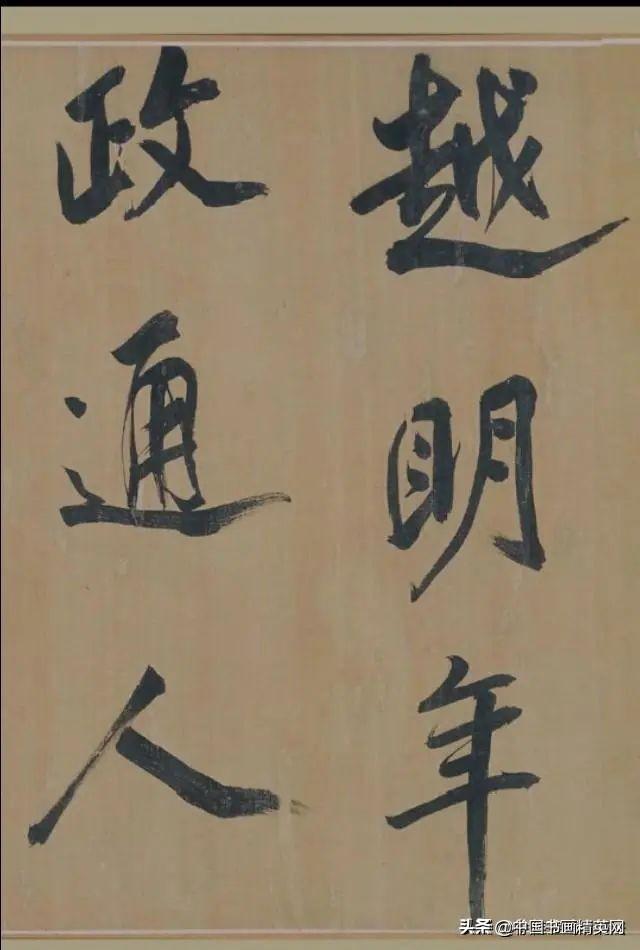 越明年
政通人
头条 @中国书画精英网